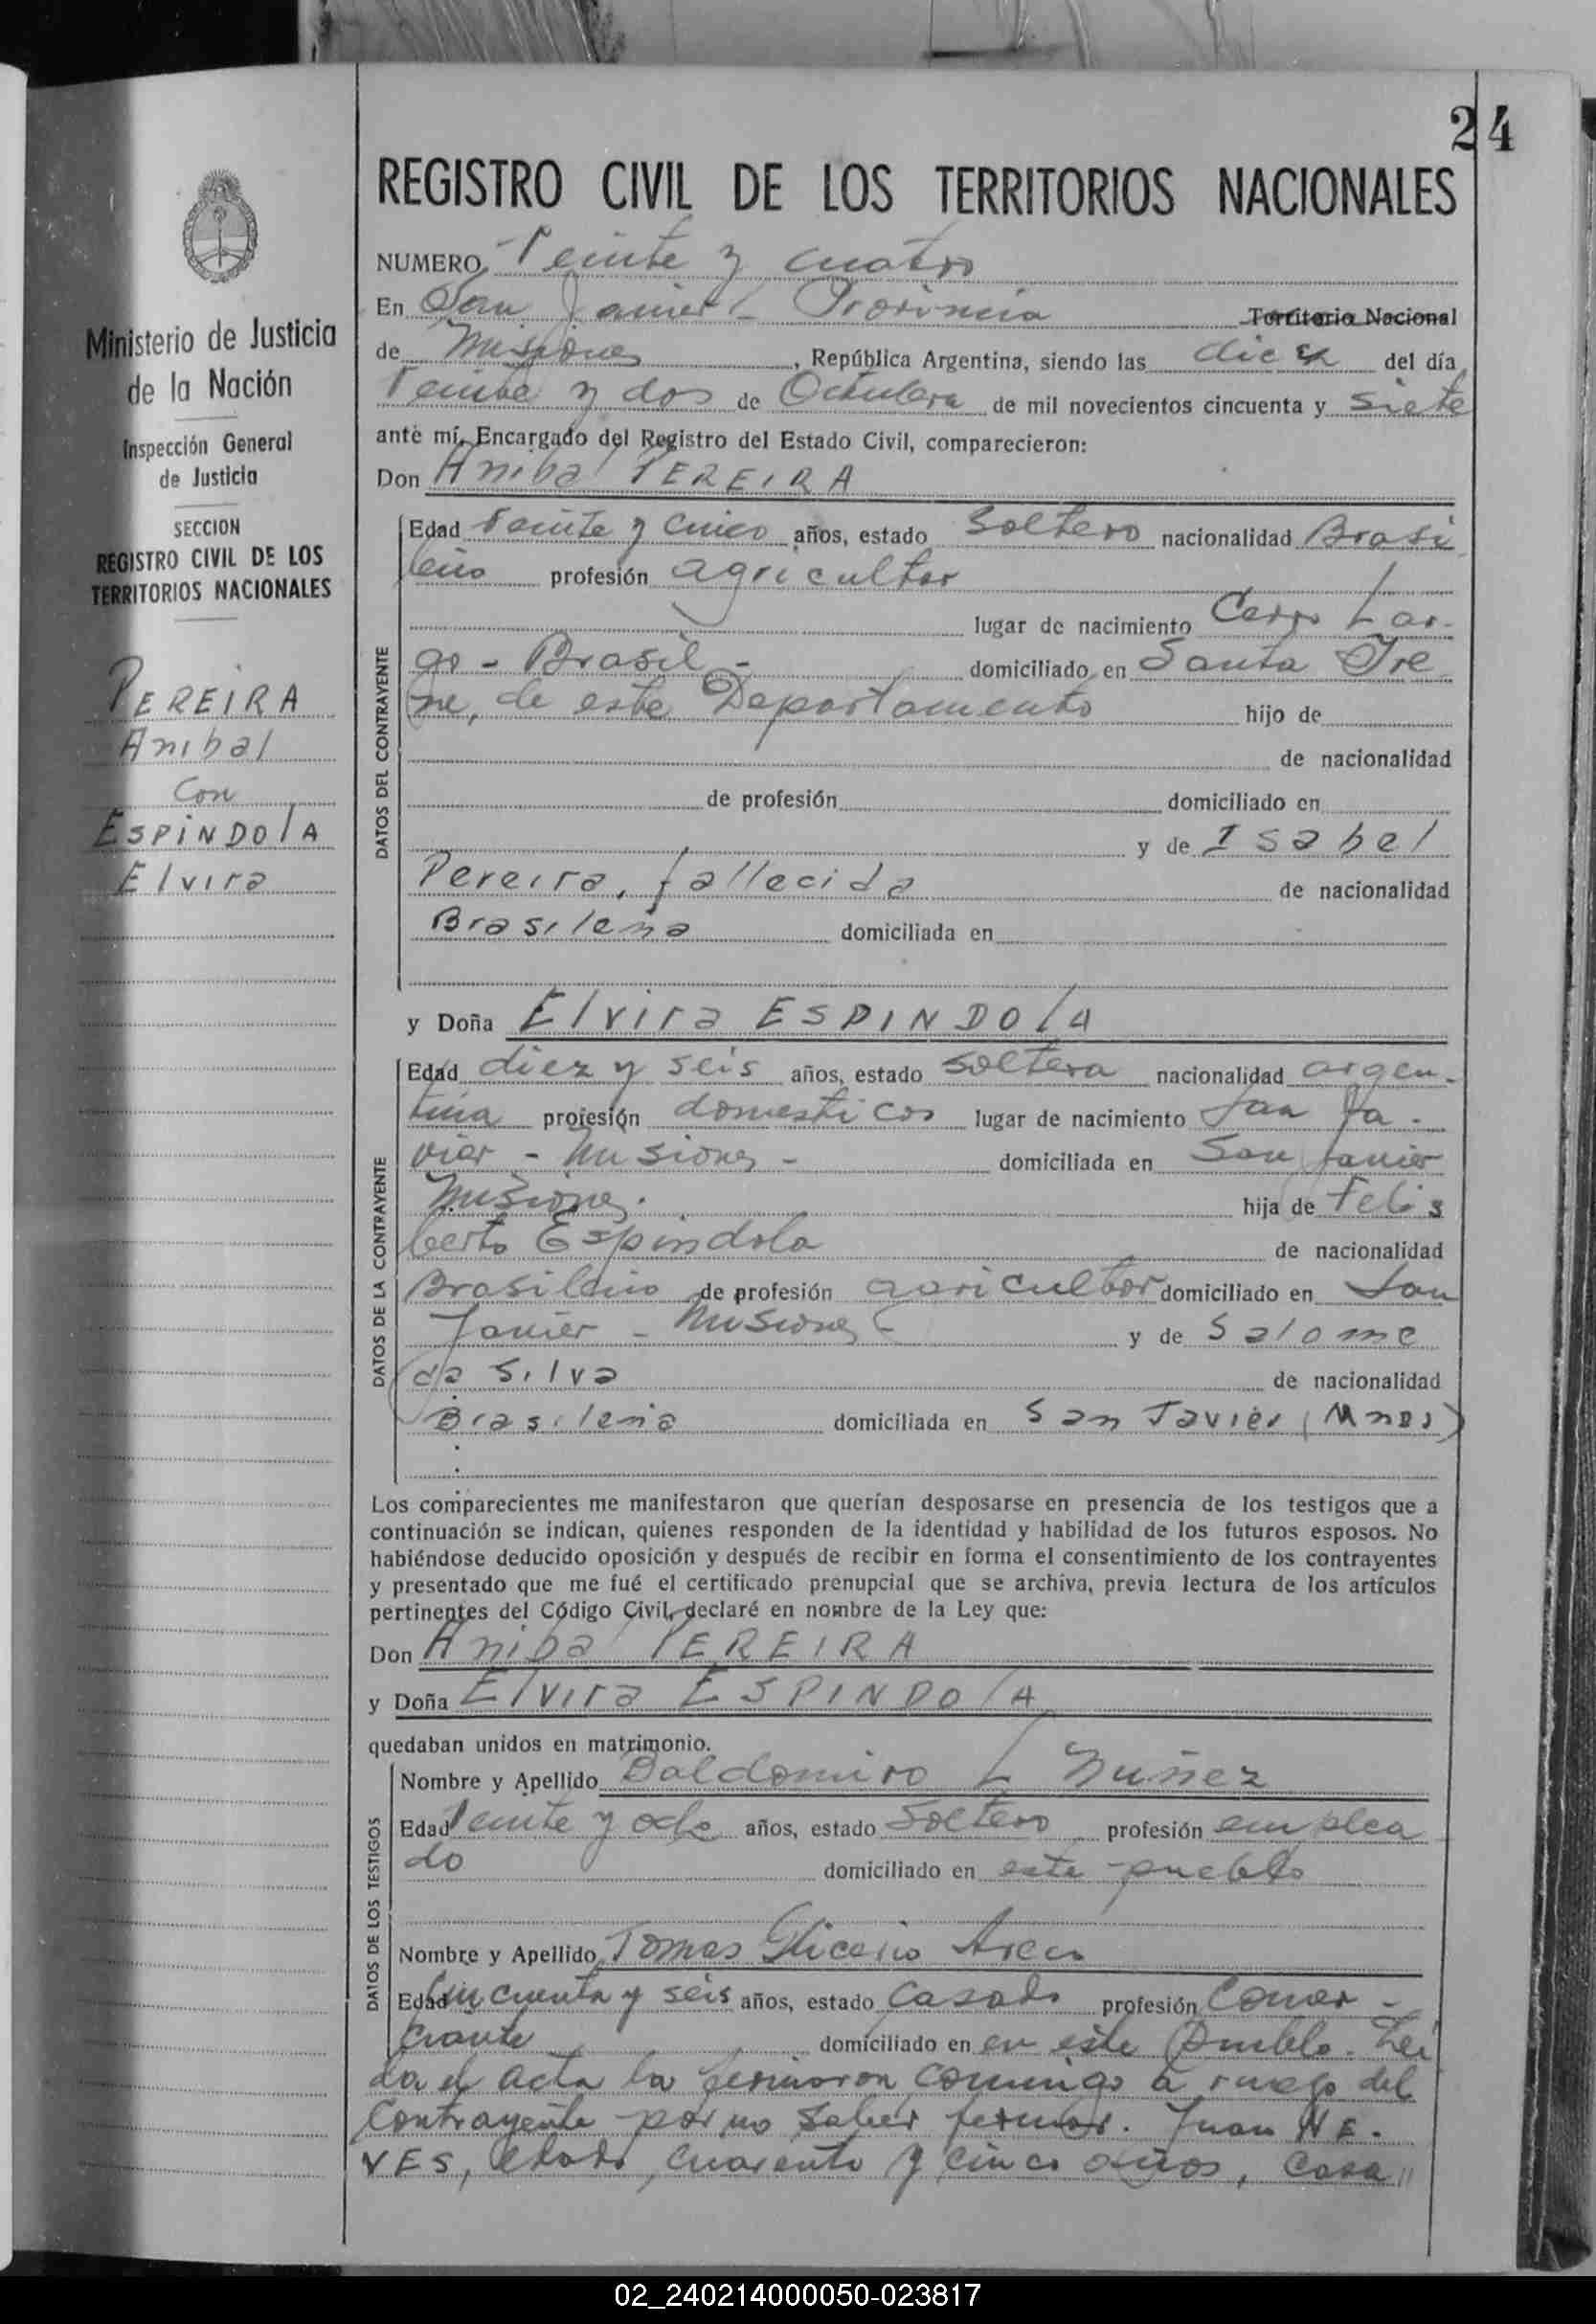 24
REGISTRO CIVIL DE LOS TERRITORIOS NACIONALES
Ministerio de Justicia
de la Nación
Inspección General
de Justicia
SECCION
REGISTRO CIVIL DE LOS
TERRITORIOS NACIONALES
PEREIRA
Anibal
Con
ESPINDOLA
Elvira
NUMERO Veinte y cuatro
En San Javier - Provincia Territorio Nacional
de Misiones, República Argentina, siendo las diez del día
Veinte y dos de Octubre de mil novecientos cincuenta y siete
ante mí, Encargado del Registro del Estado Civil, comparecieron:
Don Anibal PEREIRA
DATOS DEL CONTRAYENTE
Edad Veinte y cinco años, estado Soltero nacionalidad Brasi
leño profesión agricultor
lugar de nacimiento Cerro Lar-
go - Brasil - domiciliado en Santa Ire
ne, de este Departamento hijo de
de nacionalidad
de profesión domiciliado en
y de Isabel
Pereira, fallecida de nacionalidad
Brasileña domiciliada en
y Doña Elvira ESPINDOLA
DATOS DE LA CONTRAYENTE
Edad diez y seis años, estado Soltera nacionalidad argen-
tina profesión domesticos lugar de nacimiento San Ja-
vier - Misiones - domiciliada en San Javier
Misiones. hija de Felis
berto Espindola de nacionalidad
Brasileño de profesión agricultor domiciliado en San
Javier - Misiones - y de Salome
da Silva de nacionalidad
Brasileña domiciliada en San Javier (Mnes)
Los comparecientes me manifestaron que querían desposarse en presencia de los testigos que a
continuación se indican, quienes responden de la identidad y habilidad de los futuros esposos. No
habiéndose deducido oposición y después de recibir en forma el consentimiento de los contrayentes
y presentado que me fué el certificado prenupcial que se archiva, previa lectura de los artículos
pertinentes del Código Civil, declaré en nombre de la Ley que:
Don Anibal PEREIRA
y Doña Elvira ESPINDOLA
quedaban unidos en matrimonio.
DATOS DE LOS TESTIGOS
Nombre y Apellido Baldomiro L Nuñez
Edad Veinte y ocho años, estado Soltero profesión emplea
do domiciliado en este pueblo
Nombre y Apellido Tomas Glicerio Areco
Edad Cincuenta y seis años, estado Casado profesión Comer-
ciante domiciliado en en este Pueblo. Lei
da el acta la firmaron conmigo a ruego del
Contrayente por no saber firmar. Juan NE.
VES, edad cuarenta y cinco años, casa"
02_240214000050-023817